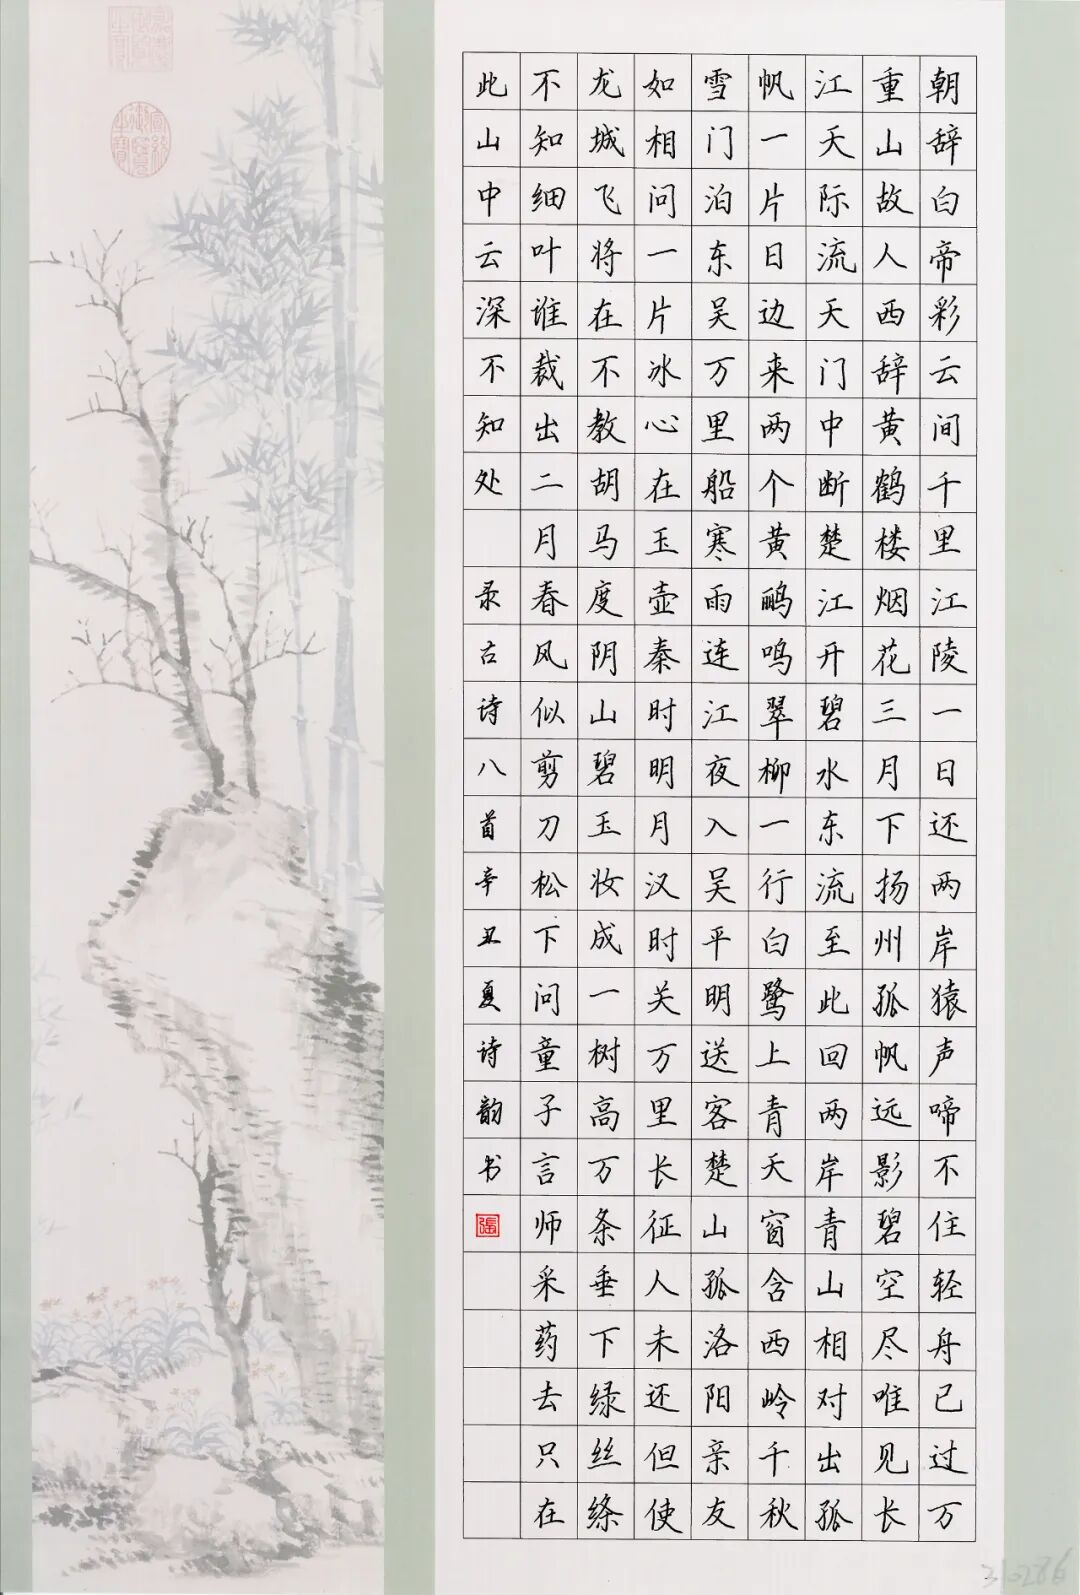 朝辞白帝彩云间千里江陵一日还两岸猿声啼不住轻舟已过万
重山故人西辞黄鹤楼烟花三月下扬州孤帆远影碧空尽唯见长
江天际流天门中断楚江开碧水东流至此回两岸青山相对出孤
帆一片日边来两个黄鹂鸣翠柳一行白鹭上青天窗含西岭千秋
雪门泊东吴万里船寒雨连江夜入吴平明送客楚山孤洛阳亲友
如相问一片冰心在玉壶秦时明月汉时关万里长征人未还但使
龙城飞将在不教胡马度阴山碧玉妆成一树高万条垂下绿丝绦
不知细叶谁裁出二月春风似剪刀松下问童子言师采药去只在
此山中云深不知处 录古诗八首辛丑夏诗韵书
張